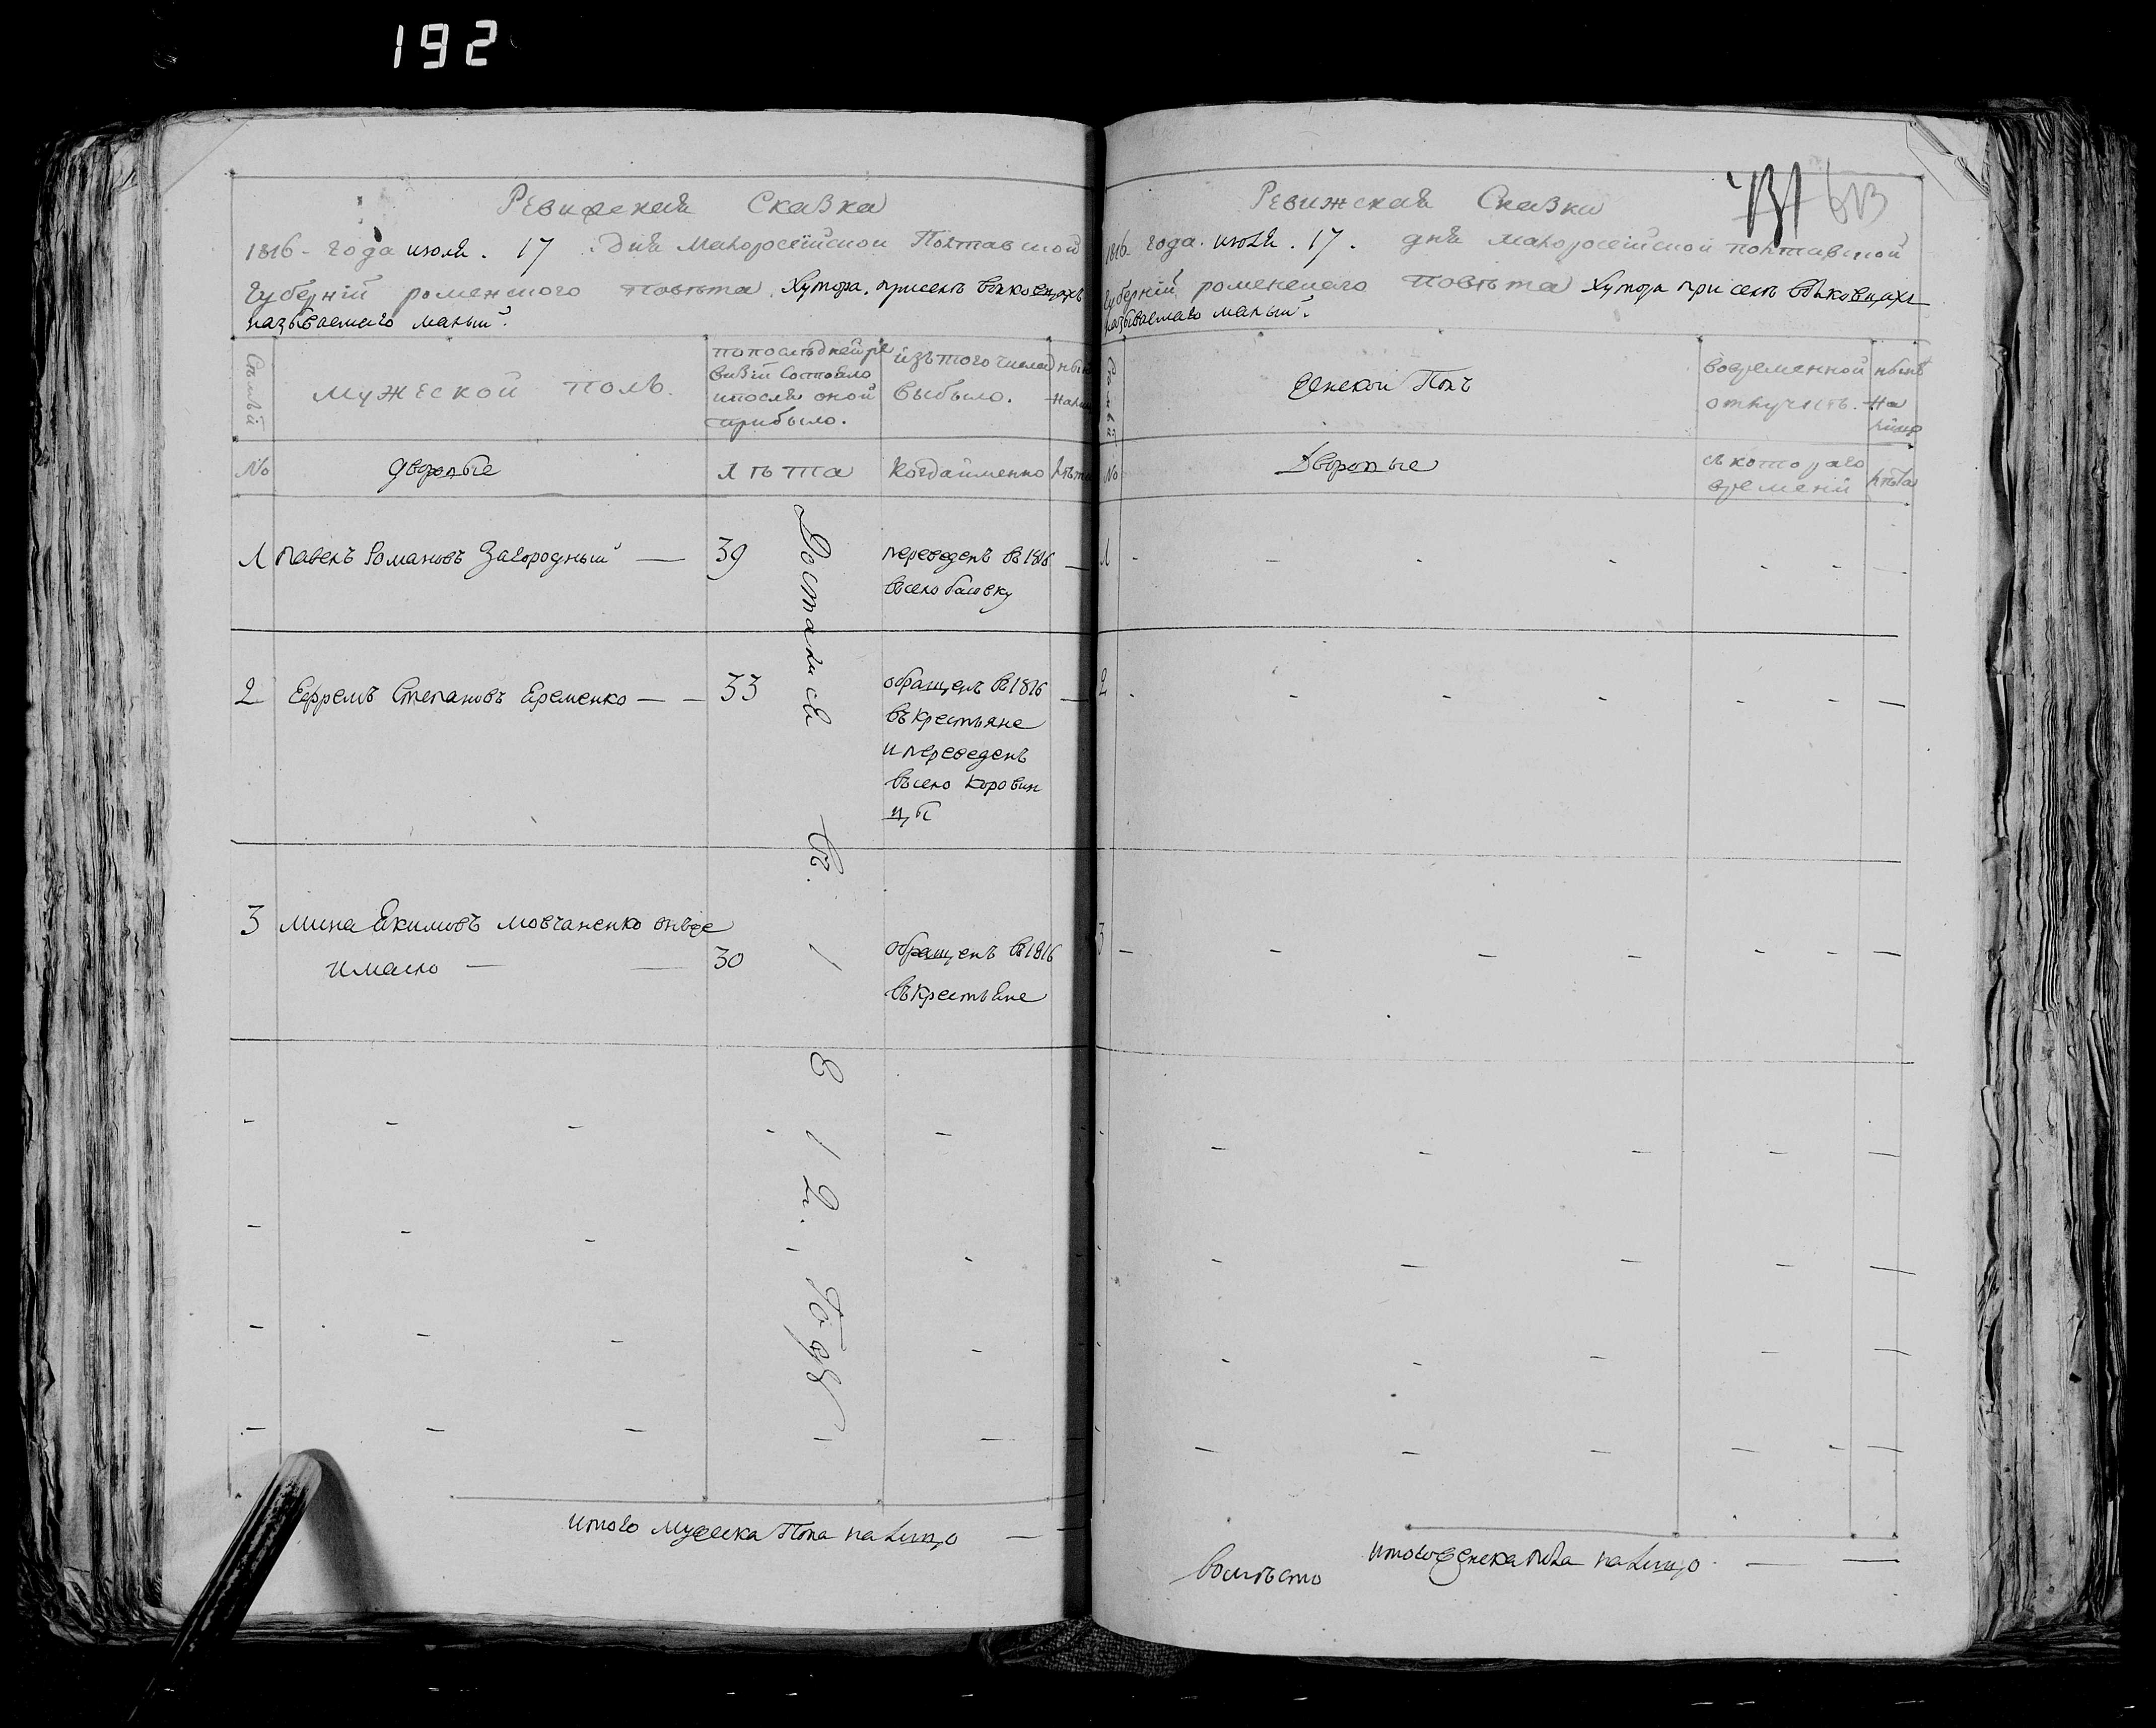 192
Ревижская Сказка
1816- года июля. 17 дня малороссійской Полтавской
Губерніи роменского повѣта Хутора при селѣ
называемаго малый.
Семьи
мужеской полъ.
попослѣдней ре
визіи состояло
и послѣ оной
прибыло.
изътого числа
выбыло.
№
дворовые
лѣта
когда именно
лѣта
Достались въ 1812 Году
1 Павелъ Романовъ Загородный — 39
переведенъ в 1816
въ село басовку
2 Ефремъ Степановъ Еременко — — 33
обращенъ в 1816
въ крестьяне
и переведенъ
въ село Коровин
цы
3 Мина Якимовъ Мовчаненко онъже
Имашо — — 30
обращенъ в 1816
въ крестьяне
итого мужеска Пола на лицо —
Ревижская Сказка
731 613
1816 года июля. 17. дня малороссійской полтавской
Губерніи роменскаго Повѣта Хутора при селѣ
называемаго малый.
женской Полъ
во временной
отлучкѣ.
нынѣ
на
лицо
№
Дворовые
съ котораго
времени
лѣта
1
2
3
итого женска пола на лицо — —
вомѣсто